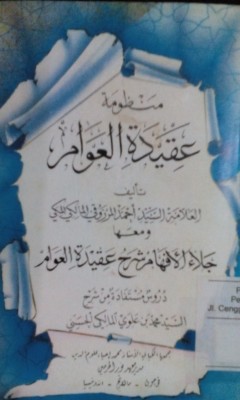 منظومة
عقيدة العوام
تأليف
العلامة السيد أحمد المرزوقي المالكي المكي
ومعها
جلاء الأفهام شرح عقيدة العوام
دروس مستفادة من شرح
السيد محمد بن علوي المالكي الحسني
P
Pe
Jl. Cengg